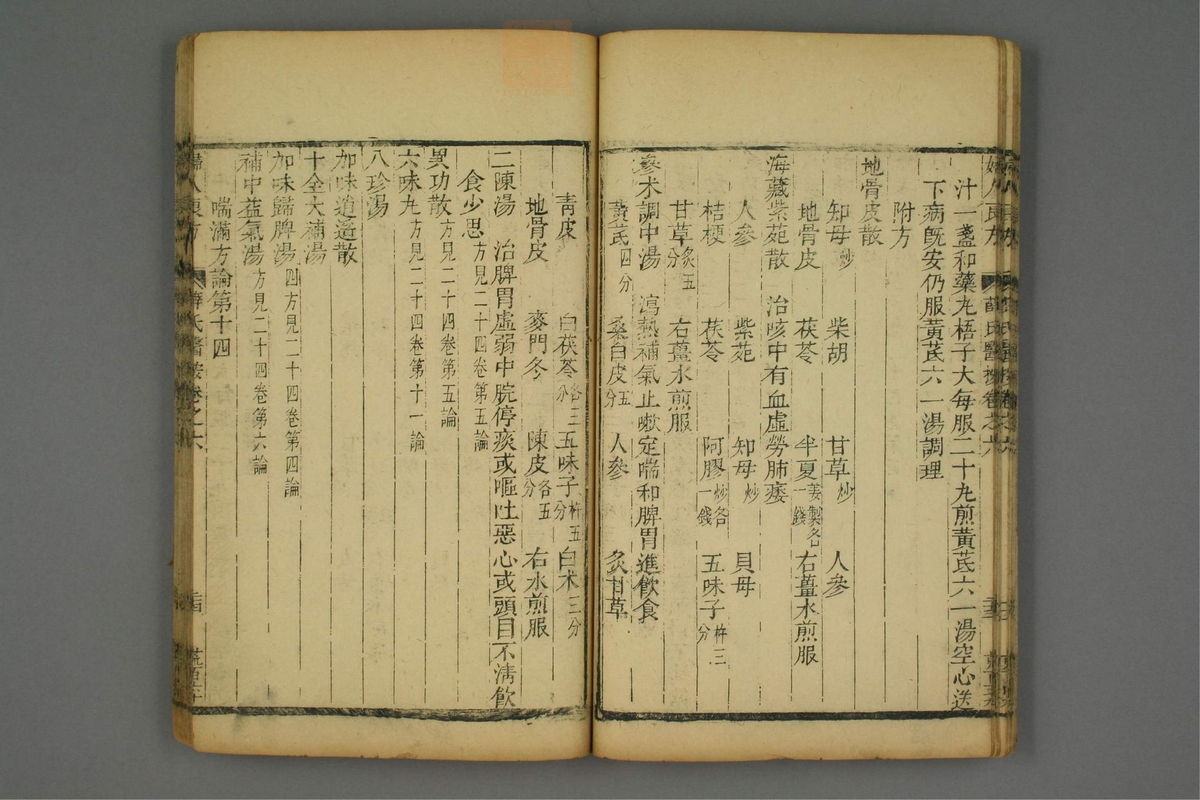 汁一盞和藥丸梧子大每服二十丸煎黃芪六一湯空心送
下病旣安仍服黃芪六一湯調理
附方
地骨皮散
知母炒 柴胡 甘草炒 人參
地骨皮 茯苓 半夏姜製各一錢 右薑水煎服
海藏紫苑散 治咳中有血虛勞肺痿
人參 紫苑 知母炒 貝母
桔梗 茯苓 阿膠炒各一錢 五味子杵三分
甘草炙五分 右薑水煎服
參术調中湯 瀉熱補氣止嗽定喘和脾胃進飲食
黃芪四分 桑白皮五分 人參 炙甘草
青皮 白茯苓各三分 五味子杵五分 白术三分
地骨皮 麥門冬 陳皮各五分 右水煎服
二陳湯 治脾胃虛弱中脘停痰或嘔吐惡心或頭目不淸飲
食少思方見二十四卷第五論
異功散方見二十四卷第五論
六味丸方見二十四卷第十一論
八珍湯
加味逍遙散
十全大補湯
加味歸脾湯四方見二十四卷第四論
補中益氣湯方見二十四卷第六論
喘滿方論第十四